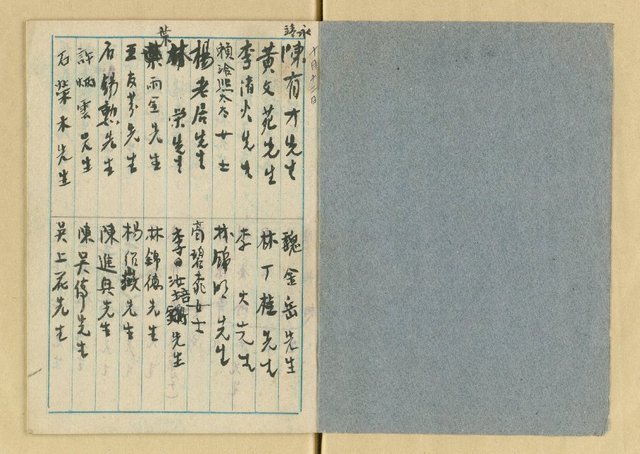 十月十三日
永靖
陳有才先生
黃文苑先生
李清火先生
女士
楊老居先生
林榮先生
葉雨金先生
王友芬先生
石錫勲先生
許炳雲先生
石榮木先生
魏金岳先生
林丁桂先生
李火先生
林錦明先生
高碧桃女士
李 汝 先生
林錦 先生
楊 先生
陳進興先生
陳吳 先生
吳上花先生